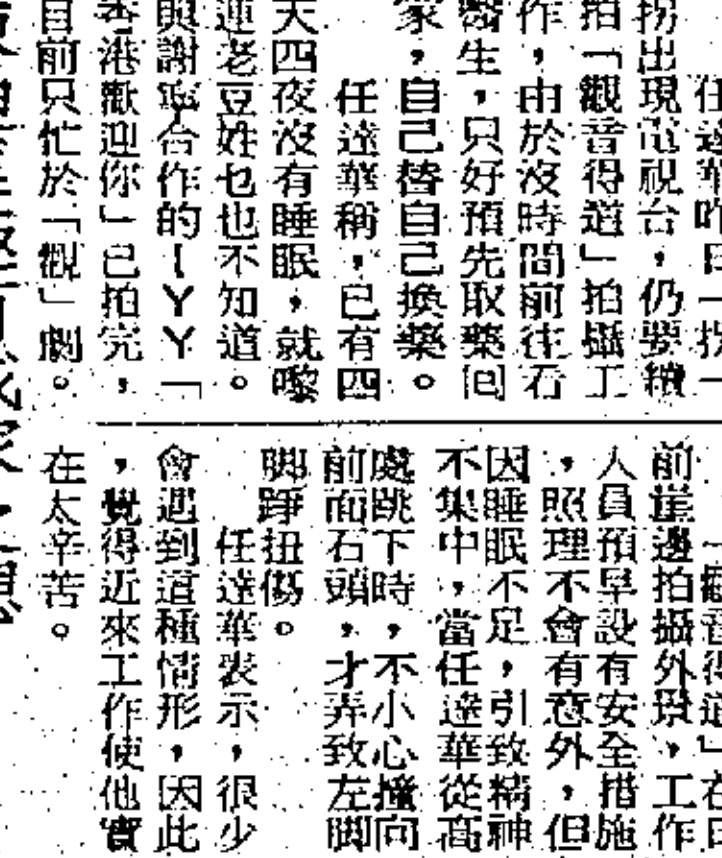 任達華昨日一拐一
拐出現電視台，仍要續
拍「觀音得道」拍攝工
作，由於沒時間前往看
醫生，只好預先取藥回
家，自己替自己換藥。
任達華稱，已有四
天四夜沒有睡眠，就嚟
連老豆姓乜也不知道。
與謝寧合作的【ＹＹ「
香港歡迎你」已拍完，
目前只忙於「觀」劇。
「觀音得道」在日
前崖邊拍攝外景，工作
人員預早設有安全措施
，照理不會有意外，但
因睡眠不足，引致精神
不集中，當任達華從高
處跳下時，不小心撞向
前面石頭，才弄致左脚
脚踭扭傷。
任達華表示，很少
會遇到這種情形，因此
，覺得近來工作使他實
在太辛苦。